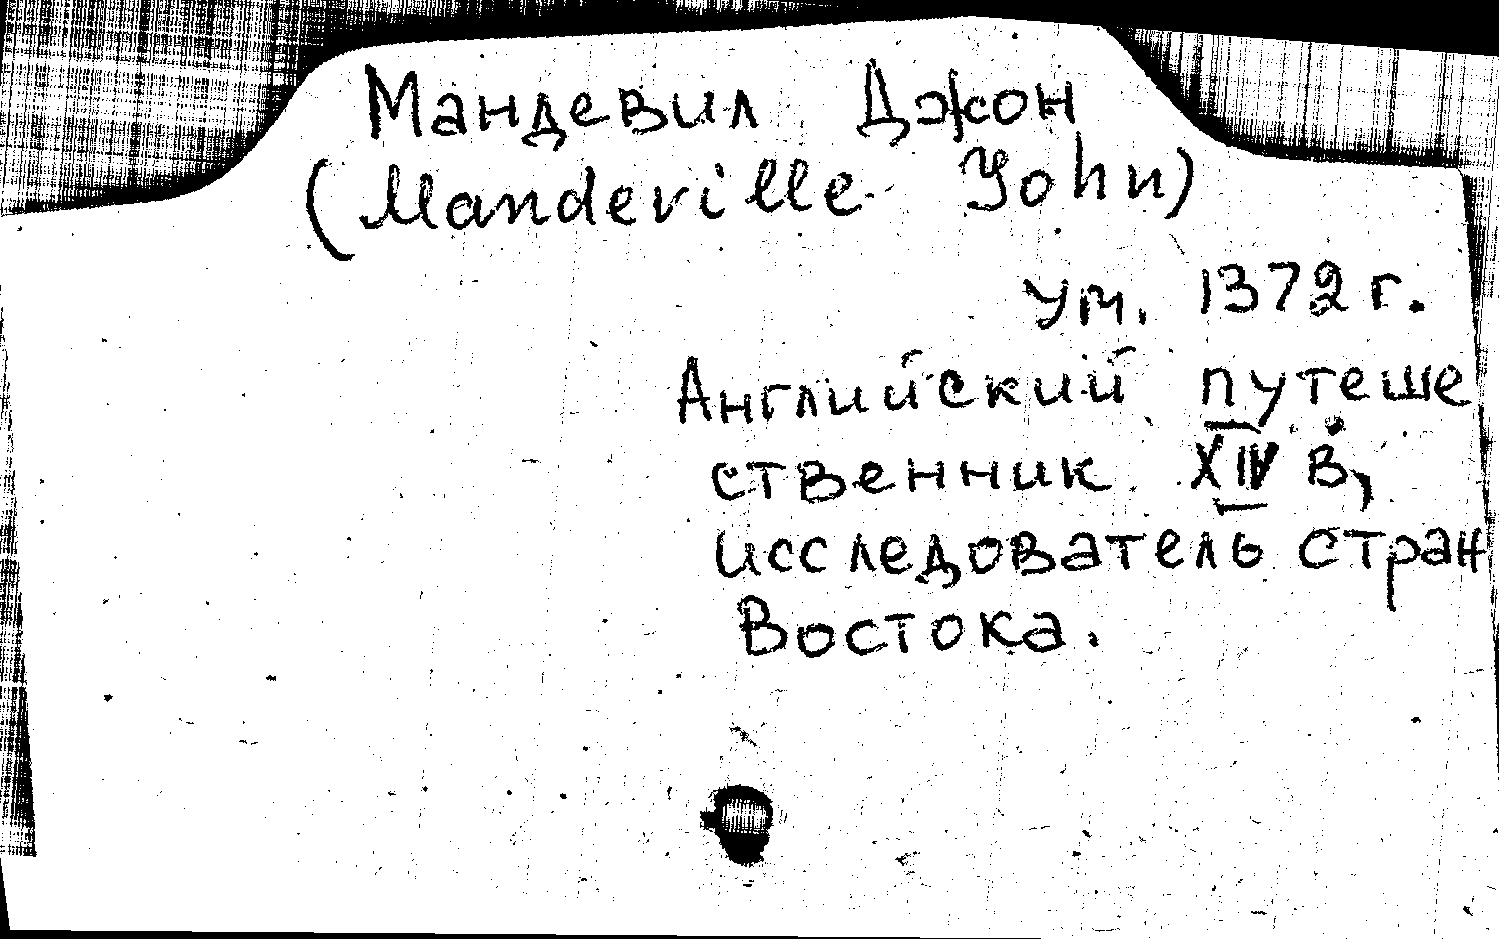 Мандевил Джон
(Mandeville John)
ум. 1372 г.
Английский путеше
ственник XIV в,
исследователь стран
Востока.